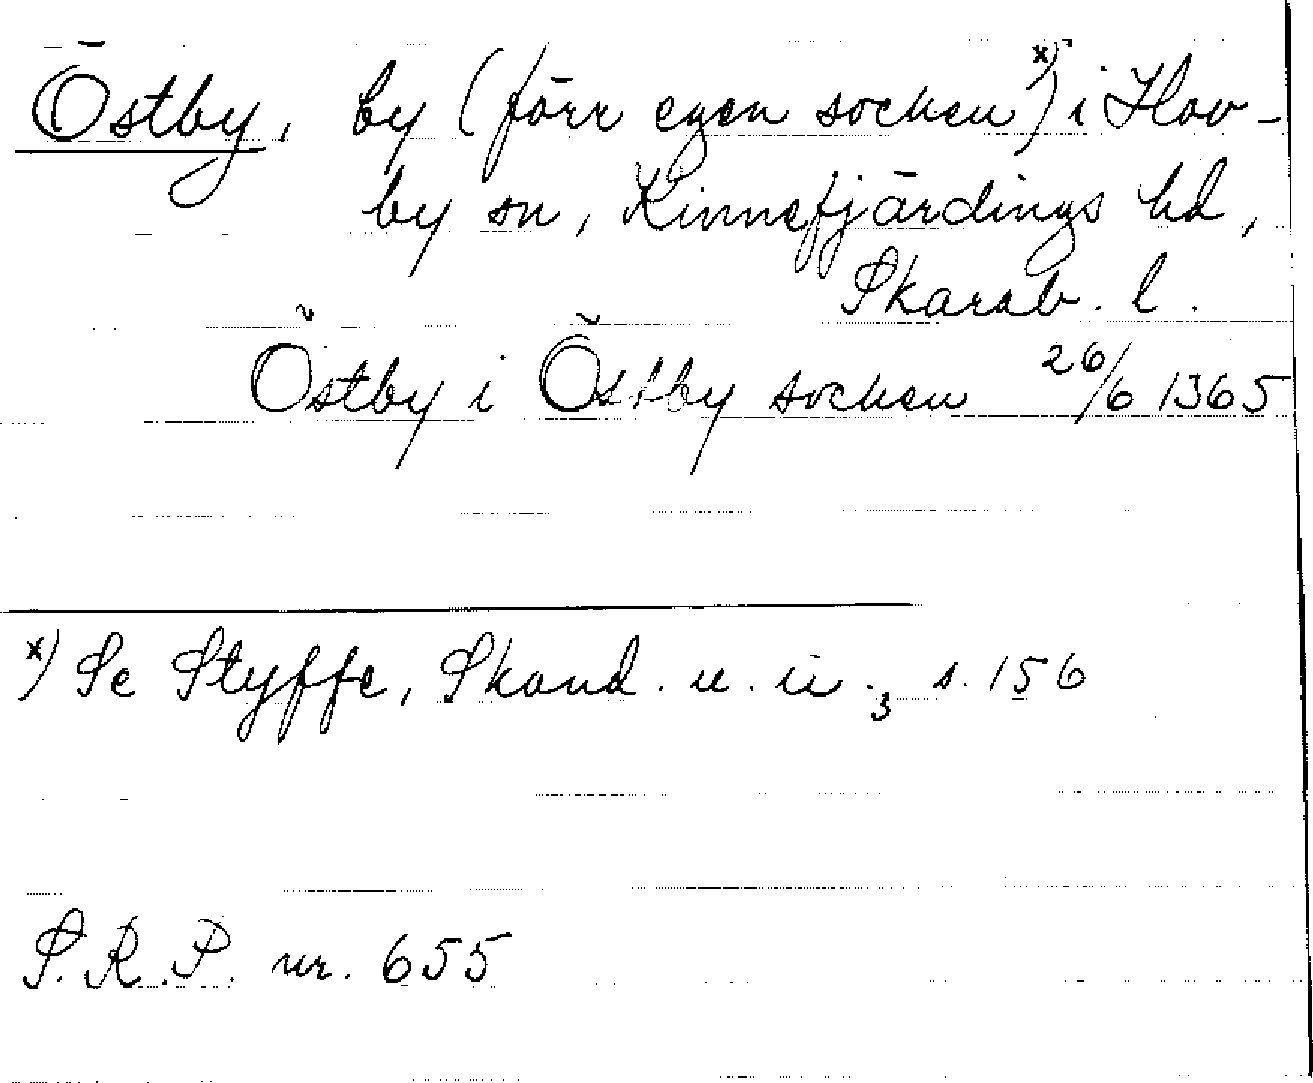 Östby, by (förr egen socken x)) i Hov-
by sn, Kinnefjärdings hd,
Skarab. l.
Östby i Östby socken 26/6 1365
x) Se Styffe, Skand. u. u. 3, s. 156
S.R.P. nr. 655